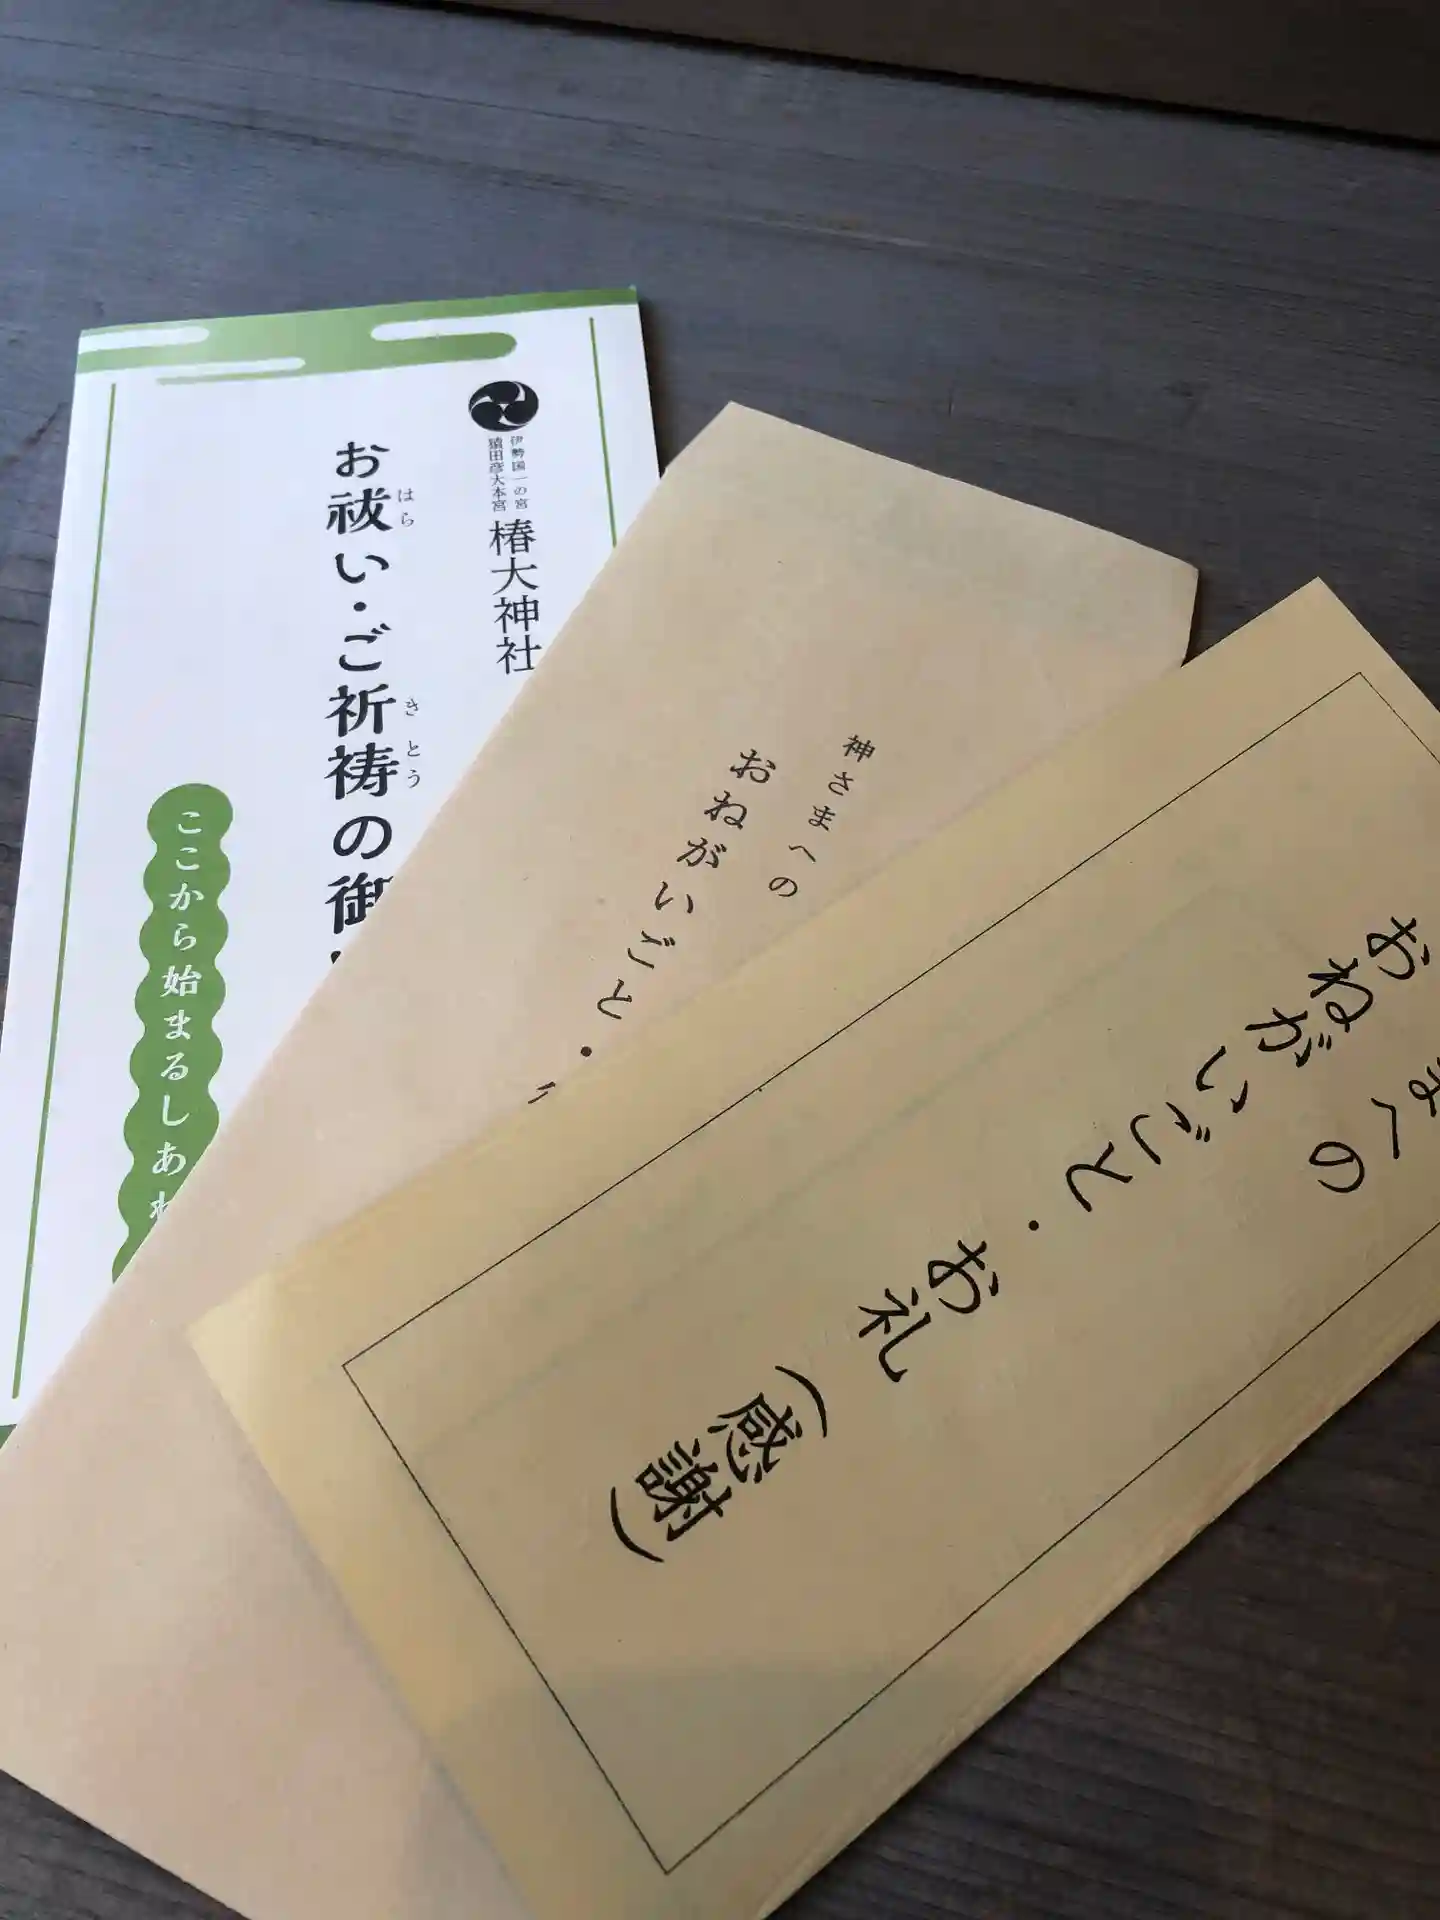 伊勢国一の宮
猿田彦大本宮
椿大神社
はら
きとう
お祓い・ご祈祷の御
ここから始まるしあ
神さまへの
おねがいごと・
まへの
おねがいごと・お礼(感謝)